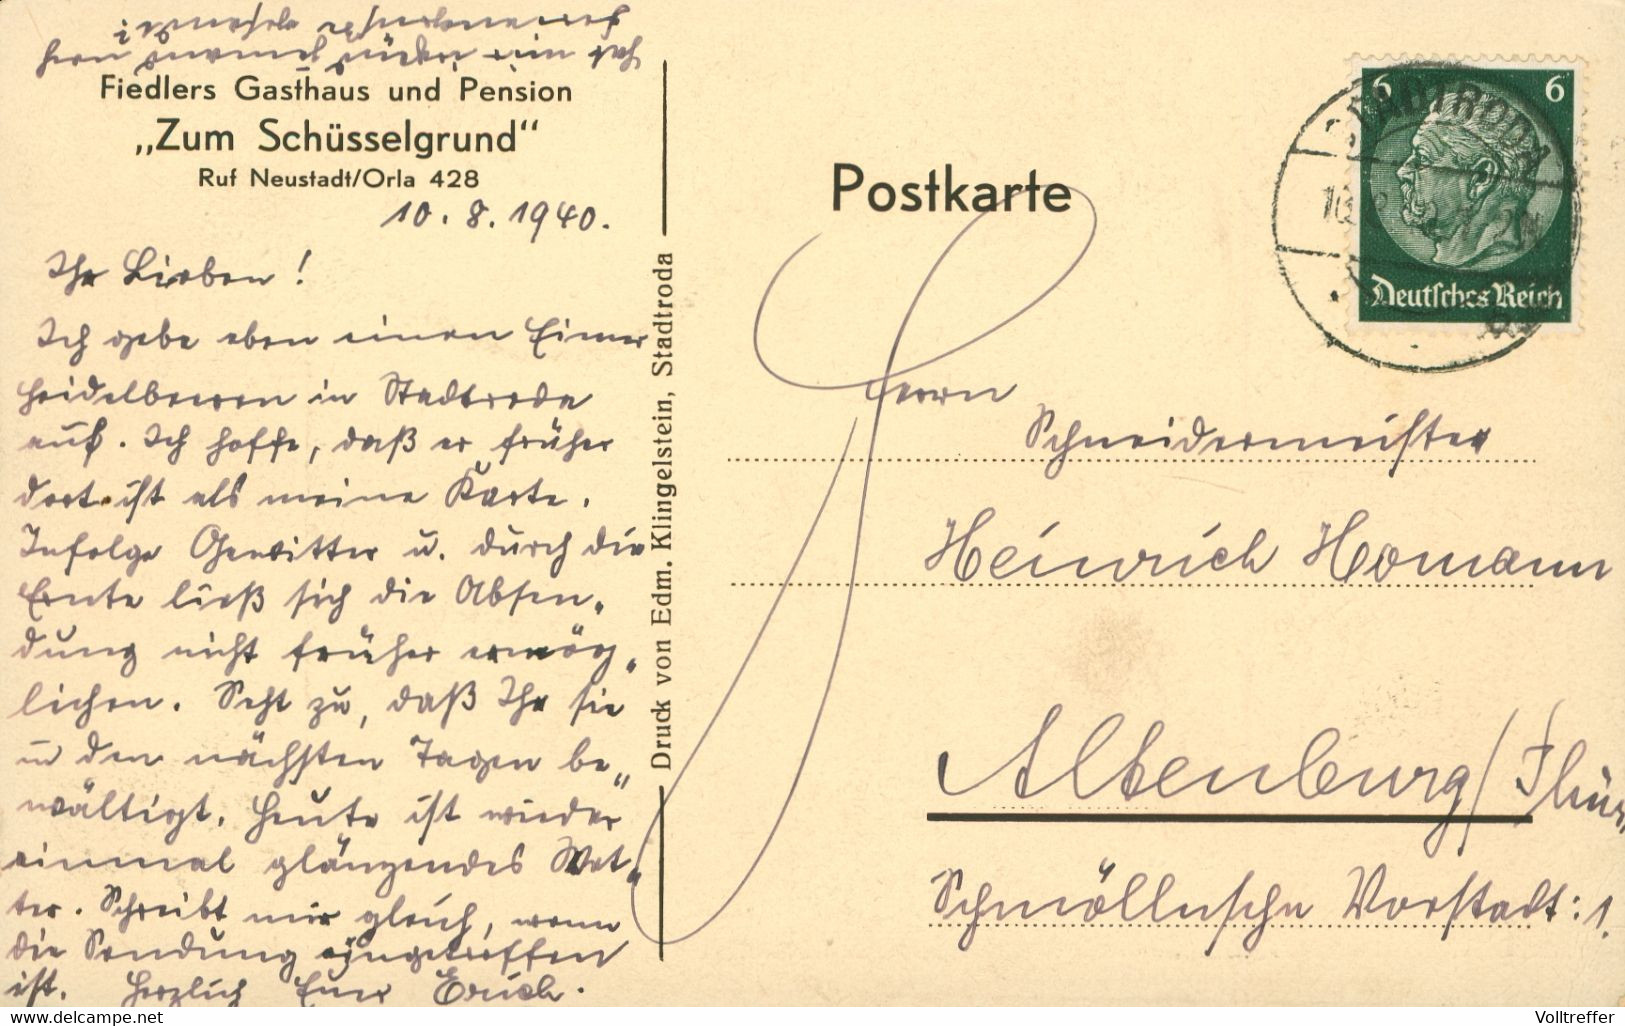 Fiedlers Gasthaus und Pension
„Zum Schüsselgrund“
Ruf Neustadt/Orla 428
10. 8. 1940.
Ihr Lieben!
Ich gebe eben einen Eimer
Heidelbeeren in Stadtroda
auf. Ich hoffe, daß er früher
dort ist als meine Karte.
Infolge Gewitter u. durch die
Ernte ließ sich die Absen„
dung nicht früher ermög„
lichen. Seht zu, daß Ihr sie
in den nächsten Tagen be„
wältigt. Heute ist wieder
einmal glänzendes Wet„
ter. Schreibt mir gleich, wenn
die Sendung eingetroffen
ist. Herzlich Euer Erich.
Druck von Edm. Klingelstein, Stadtroda
Postkarte
6 6
Deutsches Reich
STADTRODA
Herrn
Schneidermeister
Heinrich Homann
Altenburg/Thür.
Schmöllnsche Vorstadt: 1.
delcampe.net
Volltreffer